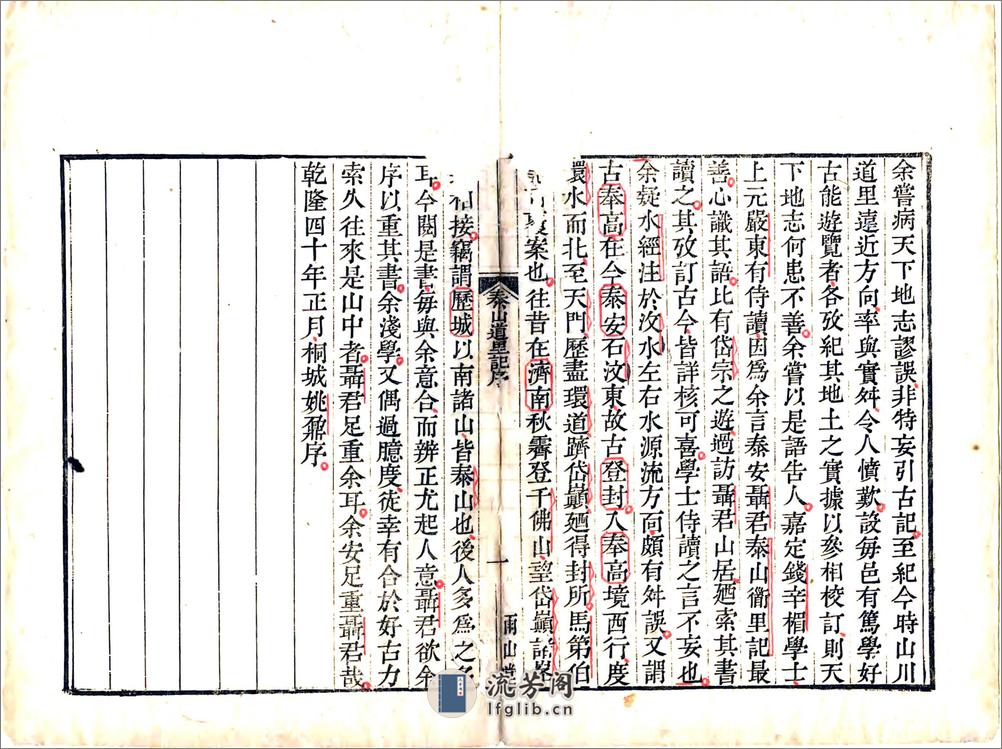 余嘗病天下地志謬誤非特妄引古記至紀今時山川
道里遠近方向率與實舛令人憤歎設每邑有篤學好
古能遊覽者各攷紀其地土之實據以參相校訂則天
下地志何患不善余嘗以是語告人嘉定錢辛楣學士
上元嚴東有侍讀因為余言泰安聶君泰山衟里記最
善心識其語比有岱宗之遊過訪聶君山居廼索其書
讀之其攷訂古今皆詳核可喜學士侍讀之言不妄也
余疑水經注於汶水左右水源流方向頗有舛誤又謂
古奉高在今泰安石汶東故古登封入奉高境西行度
環水而北至天門歷盡環道躋岱巔廼得封所馬第伯
案也往昔在濟南秋霽登千佛山望岱巔諸峯
泰山道里記序
一
雨山堂
相接竊謂歷城以南諸山皆泰山也後人多為之名
耳今閱是書每與余意合而辨正尤起人意聶君欲余
序以重其書余淺學又偶過臆度徒幸有合於好古力
索久往來是山中者聶君足重余耳余安足重聶君哉
乾隆四十年正月桐城姚鼐序
流芳閣
lfglib.cn